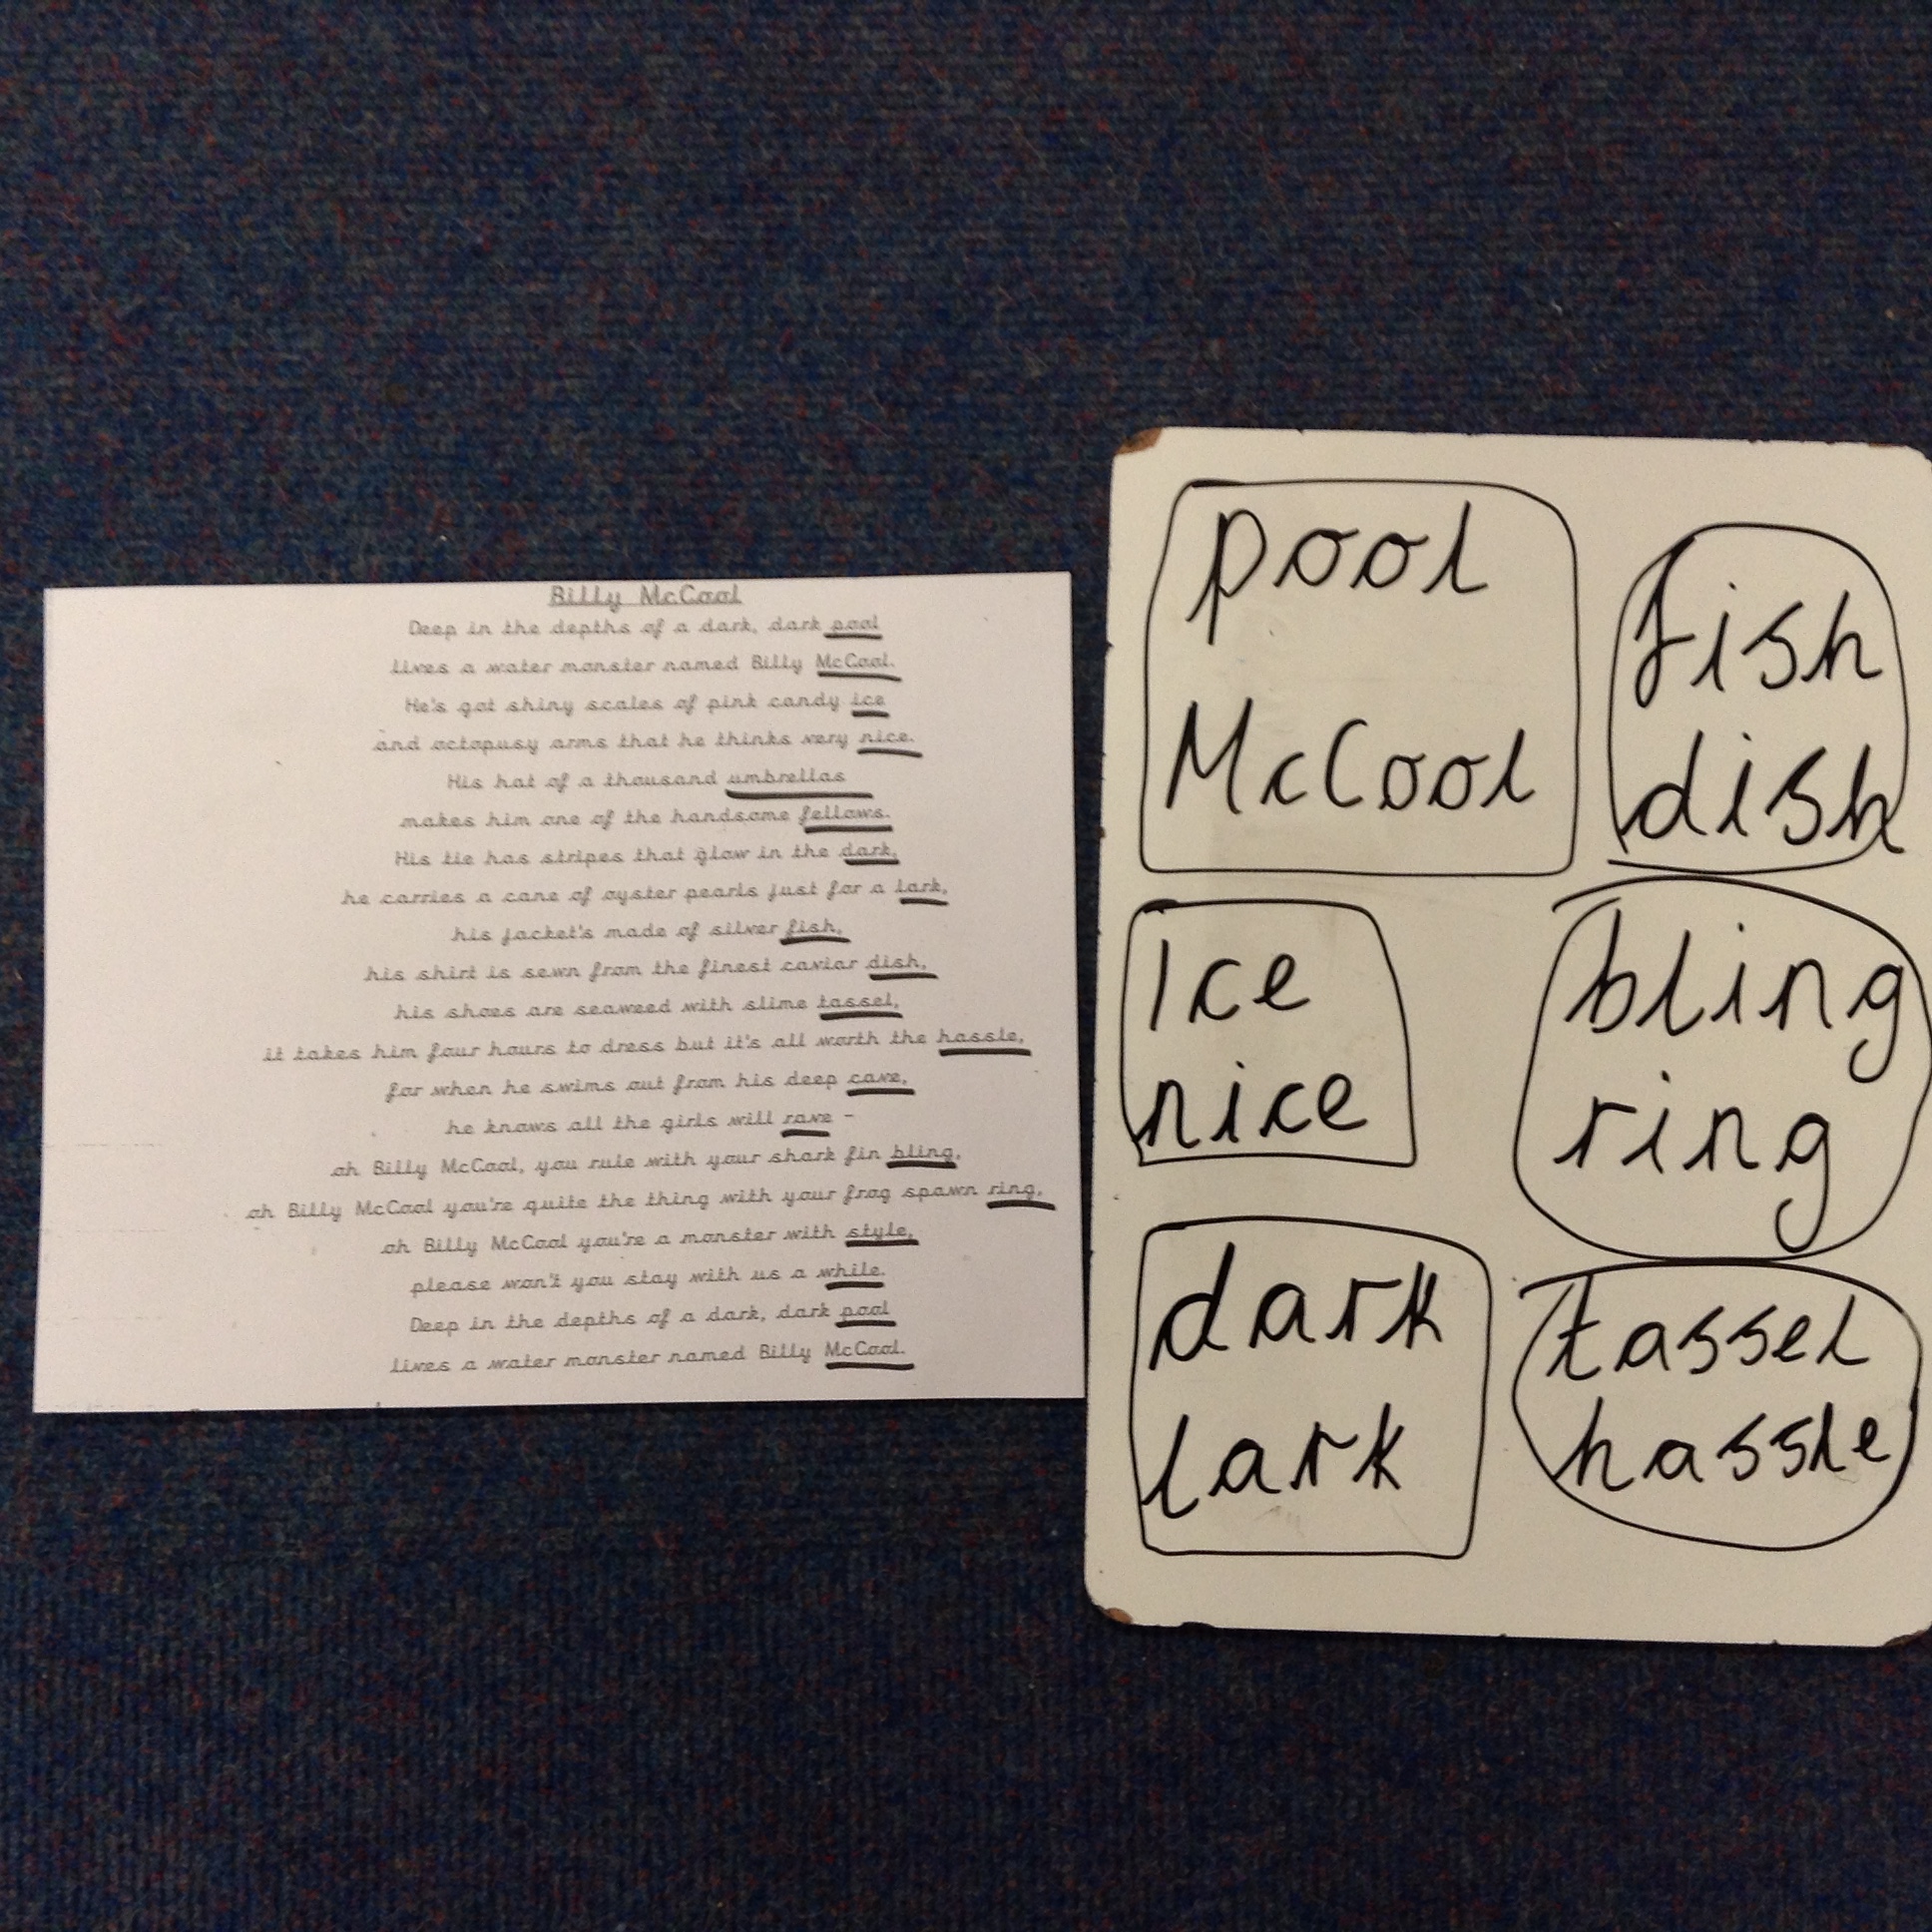 Billy McCool
Deep in the depths of a dark, dark pool
lives a water monster named Billy McCool.
He's got shiny scales of pink candy ice
and octopusy arms that he thinks very nice.
His hat of a thousand umbrellas
makes him one of the handsome fellows.
His tie has stripes that glow in the dark,
he carries a cane of oyster pearls just for a lark,
his jacket's made of silver fish,
his shirt is sewn from the finest caviar dish,
his shoes are seaweed with slime tassel,
it takes him four hours to dress but it's all worth the hassle,
for when he swims out from his deep cave,
he knows all the girls will rave -
oh Billy McCool, you rule with your shark fin bling,
oh Billy McCool you're quite the thing with your frog spawn ring,
oh Billy McCool you're a monster with style,
please won't you stay with us a while.
Deep in the depths of a dark, dark pool
lives a water monster named Billy McCool.
pool
McCool
fish
dish
Ice
nice
bling
ring
dark
lark
tassel
hassle